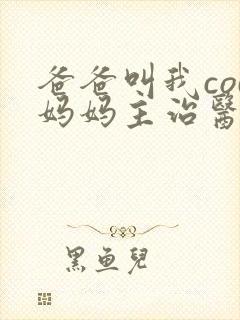 爸爸叫我co
妈妈主治醫
黑鱼兒